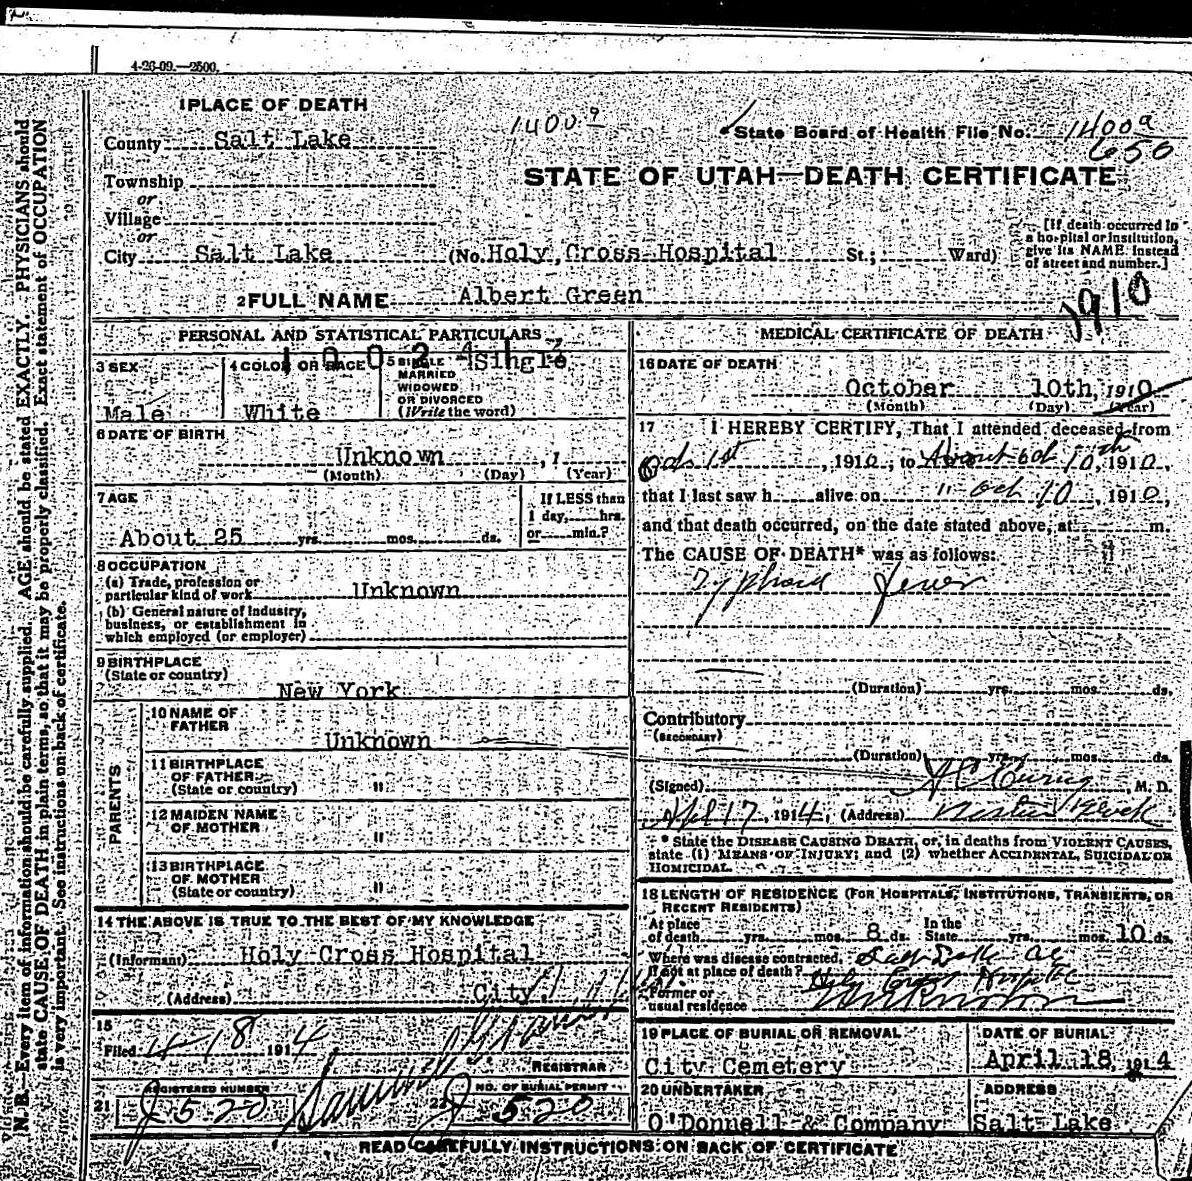 4-26-09.—2500.
1 PLACE OF DEATH
County Salt Lake
1400 9
State Board of Health File No. 1400 9
650
Township
or
Village
or
STATE OF UTAH—DEATH CERTIFICATE
City Salt Lake (No. Holy Cross Hospital St.; Ward)
[If death occurred in a hospital or institution, give its NAME instead of street and number.]
2 FULL NAME Albert Green
1910
PERSONAL AND STATISTICAL PARTICULARS
3 SEX
Male
4 COLOR OR RACE
White
5 SINGLE MARRIED WIDOWED OR DIVORCED (Write the word)
Single
6 DATE OF BIRTH
Unknown, 1
(Month) (Day) (Year)
7 AGE
About 25 yrs. mos. ds.
If LESS than 1 day, hrs. or min.?
8 OCCUPATION
(a) Trade, profession or particular kind of work Unknown
(b) General nature of industry, business, or establishment in which employed (or employer)
9 BIRTHPLACE
(State or country)
New York
PARENTS
10 NAME OF FATHER
Unknown
11 BIRTHPLACE OF FATHER (State or country) "
12 MAIDEN NAME OF MOTHER "
13 BIRTHPLACE OF MOTHER (State or country) "
14 THE ABOVE IS TRUE TO THE BEST OF MY KNOWLEDGE
(Informant) Holy Cross Hospital
(Address) City
15
Filed 4-18 1914
REGISTRAR
REGISTERED NUMBER
21 J 520
NO. OF BURIAL PERMIT
22 J 520
MEDICAL CERTIFICATE OF DEATH
16 DATE OF DEATH
October 10th, 1910
(Month) (Day) (Year)
17 I HEREBY CERTIFY, That I attended deceased from
Oct 1st, 1910, to About Oct 10th, 1910,
that I last saw h alive on " Oct 10, 1910,
and that death occurred, on the date stated above, at m.
The CAUSE OF DEATH* was as follows:
Typhoid Fever
(Duration) yrs. mos. ds.
Contributory
(SECONDARY)
(Duration) yrs. mos. ds.
(Signed) A C Ewing, M. D.
Apl 17, 1914, (Address)
* State the DISEASE CAUSING DEATH, or, in deaths from VIOLENT CAUSES, state (1) MEANS OF INJURY; and (2) whether ACCIDENTAL, SUICIDAL OR HOMICIDAL.
18 LENGTH OF RESIDENCE (FOR HOSPITALS, INSTITUTIONS, TRANSIENTS, OR RECENT RESIDENTS)
At place of death yrs. mos. 8 ds. In the State yrs. mos. 10 ds.
Where was disease contracted, Salt Lake
if not at place of death? Holy Cross Hospital
Former or usual residence Unknown
19 PLACE OF BURIAL OR REMOVAL
City Cemetery
DATE OF BURIAL
April 18, 1914
20 UNDERTAKER
O'Donnell & Company
ADDRESS
Salt Lake
READ CAREFULLY INSTRUCTIONS ON BACK OF CERTIFICATE
N. B.—Every item of information should be carefully supplied. AGE should be stated EXACTLY. PHYSICIANS should
state CAUSE OF DEATH in plain terms, so that it may be properly classified. Exact statement of OCCUPATION
is very important. See instructions on back of certificate.